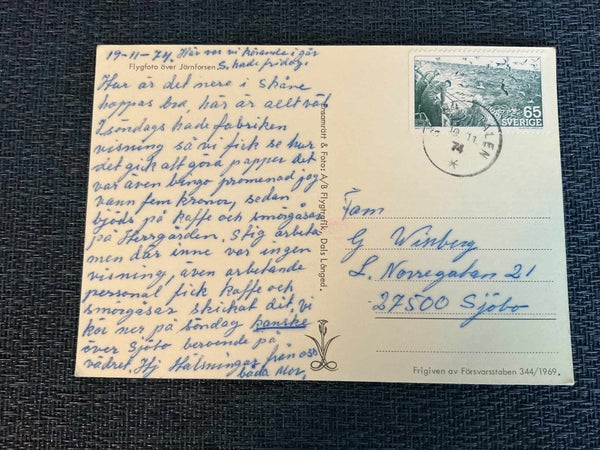 19-11-74. Här var vi körande i går
Flygfoto över Järnforsen S. hade fridag.
Hur är det nere i Skåne
hoppas bra, här är allt väl
I söndags hade fabriken
visning så vi fick se hur
det gick att göra papper det
var även bingo promenad jag
vann fem kronor, sedan
bjöds på kaffe och smörgåsar
på Herrgården. Stig arbeta
men där inne var ingen
visning, även arbetande
personal fick kaffe och
smörgåsar skickat dit. Vi
kör ner på söndag kanske
över Sjöbo beroende på
vädret. Hj Hälsningar från oss
båda Mor.
Ensamrätt & Foto: A/B Flygtrafik, Dals Långed.
65
SVERIGE
LEN
19 11
74
Fam
G Winberg
L. Norregatan 21
27500 Sjöbo
Frigiven av Försvarsstaben 344/1969.